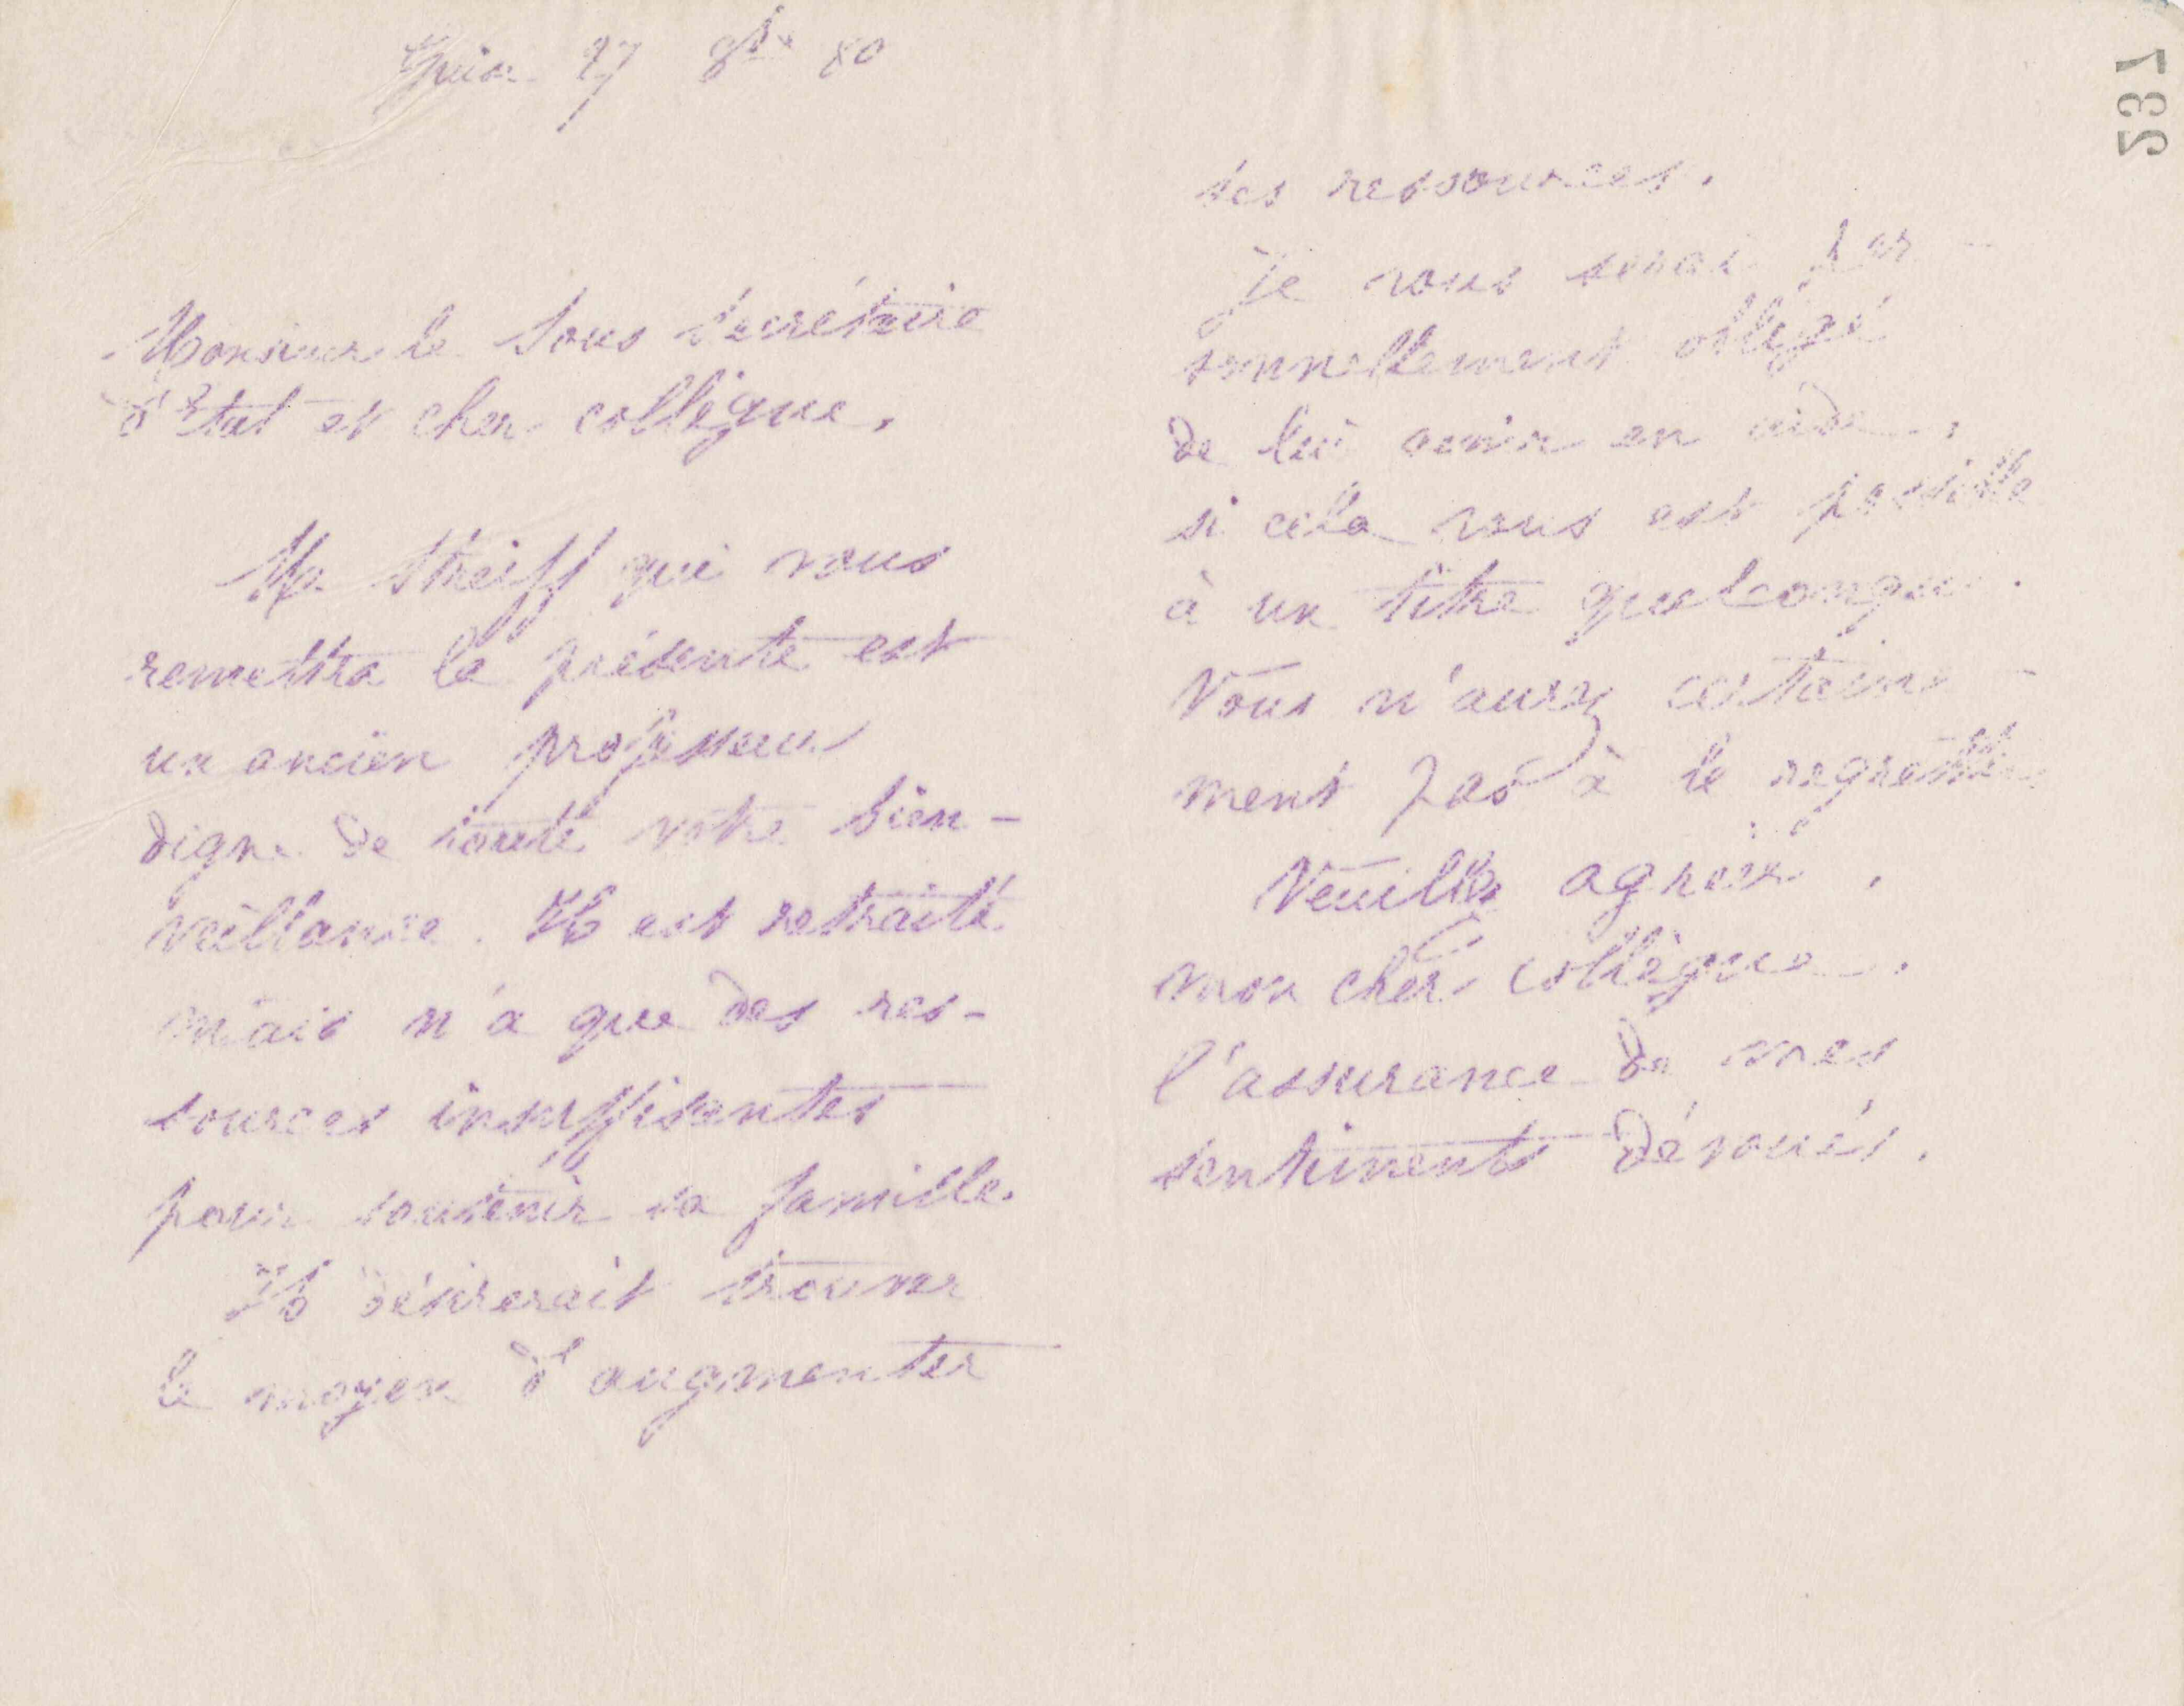 Guise 27 8bre 80
Monsieur le Sous Secrétaire
d'Etat et cher collègue,
Mr. Streiff qui vous
remettra la présente est
un ancien professeur
digne de toute votre bien-
veillance. Il est retraité
mais n'a que des res-
sources insuffisantes
pour soutenir sa famille.
Il désirerait trouver
le moyen d'augmenter
ses ressources.
Je vous serai per-
sonnellement obligé
de lui venir en aide,
si cela vous est possible
à un titre quelconque.
Vous n'aurez certaine-
ment pas à le regretter.
Veuillez agréer,
mon cher collègue,
l'assurance de mes
sentiments dévoués.
237